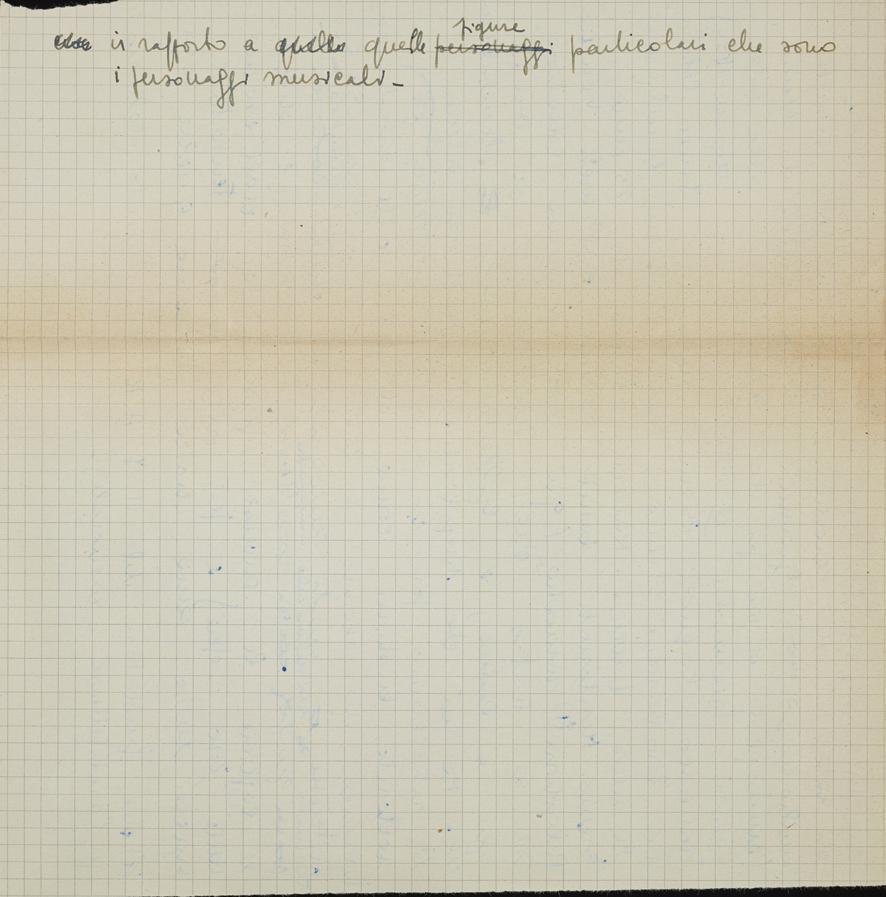 in rapporto a quelle quelle figure personaggi particolari che sono
i personaggi musicali_